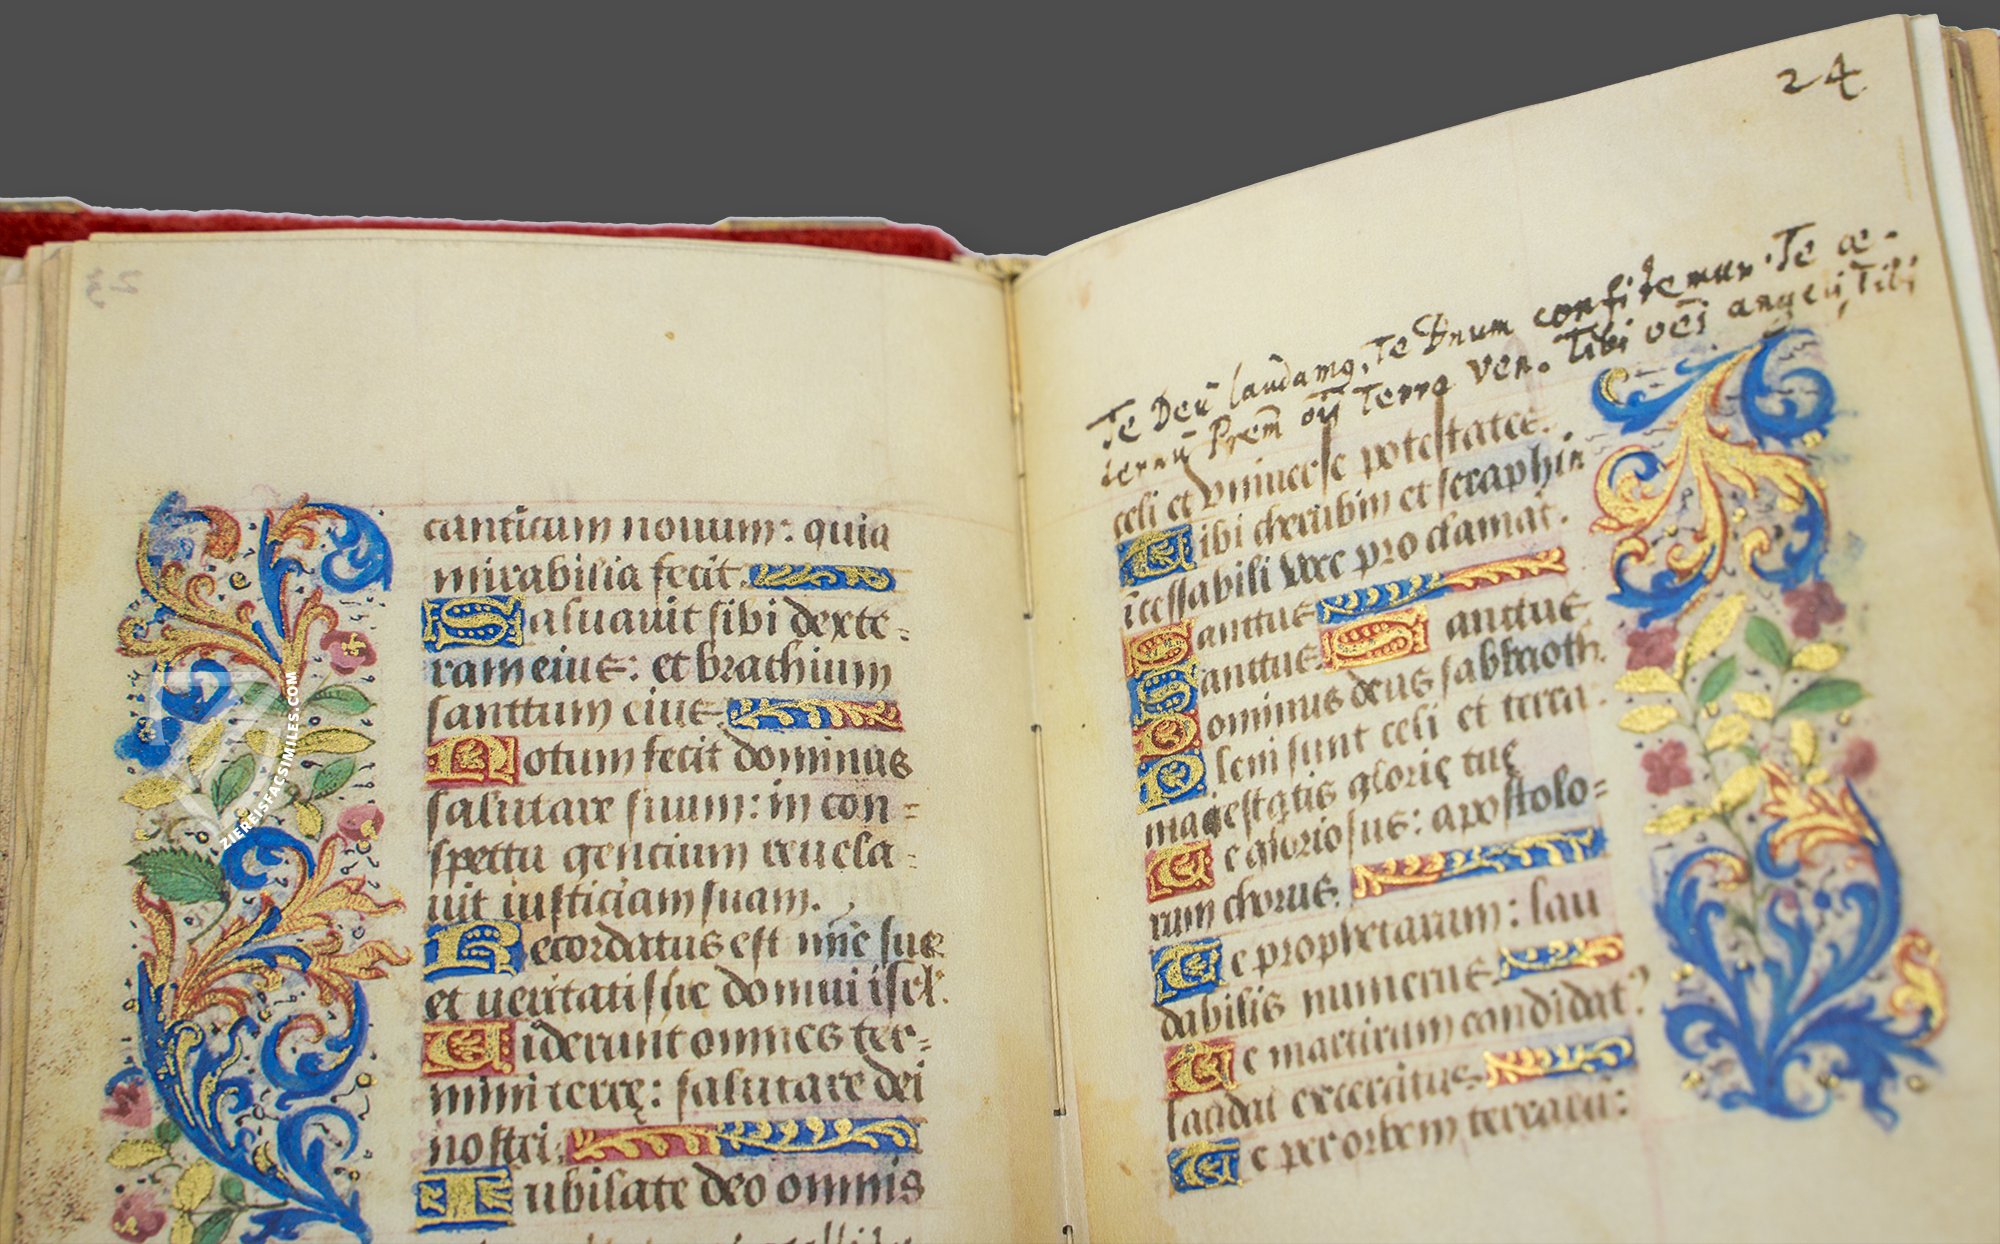 23
canticum nouum: quia
mirabilia fecit.
Saluauit sibi dexte-
ram eius: et brachium
sanctum eius.
Notum fecit dominus
salutare suum: in con-
spectu gentium reuela-
uit iusticiam suam.
Recordatus est mīe sue
et veritatis sue domui isrl.
Uiderunt omnes ter-
mini terrę: salutare dei
nostri.
Iubilate deo omnis
ZIEREISFACSIMILES.COM
24
Te Deū laudamꝯ, Te Dnum confitemur. Te æ-
ternū Prem oīs Terra ven. Tibi oēs angeli, Tibi
celi et vniuerse potestates.
Tibi cherubin et seraphin
īcessabili voce proclamāt.
Sanctus Sanctus
Sanctus
Dominus deus sabbaoth.
Pleni sunt celi et terra.
magestatis glorię tuę
Te gloriosus: apostolo-
rum chorus.
Te prophetarum: lau
dabilis numerus.
Te martirum candidat⁹
laudat excercitus.
Te per orbem terrarū: